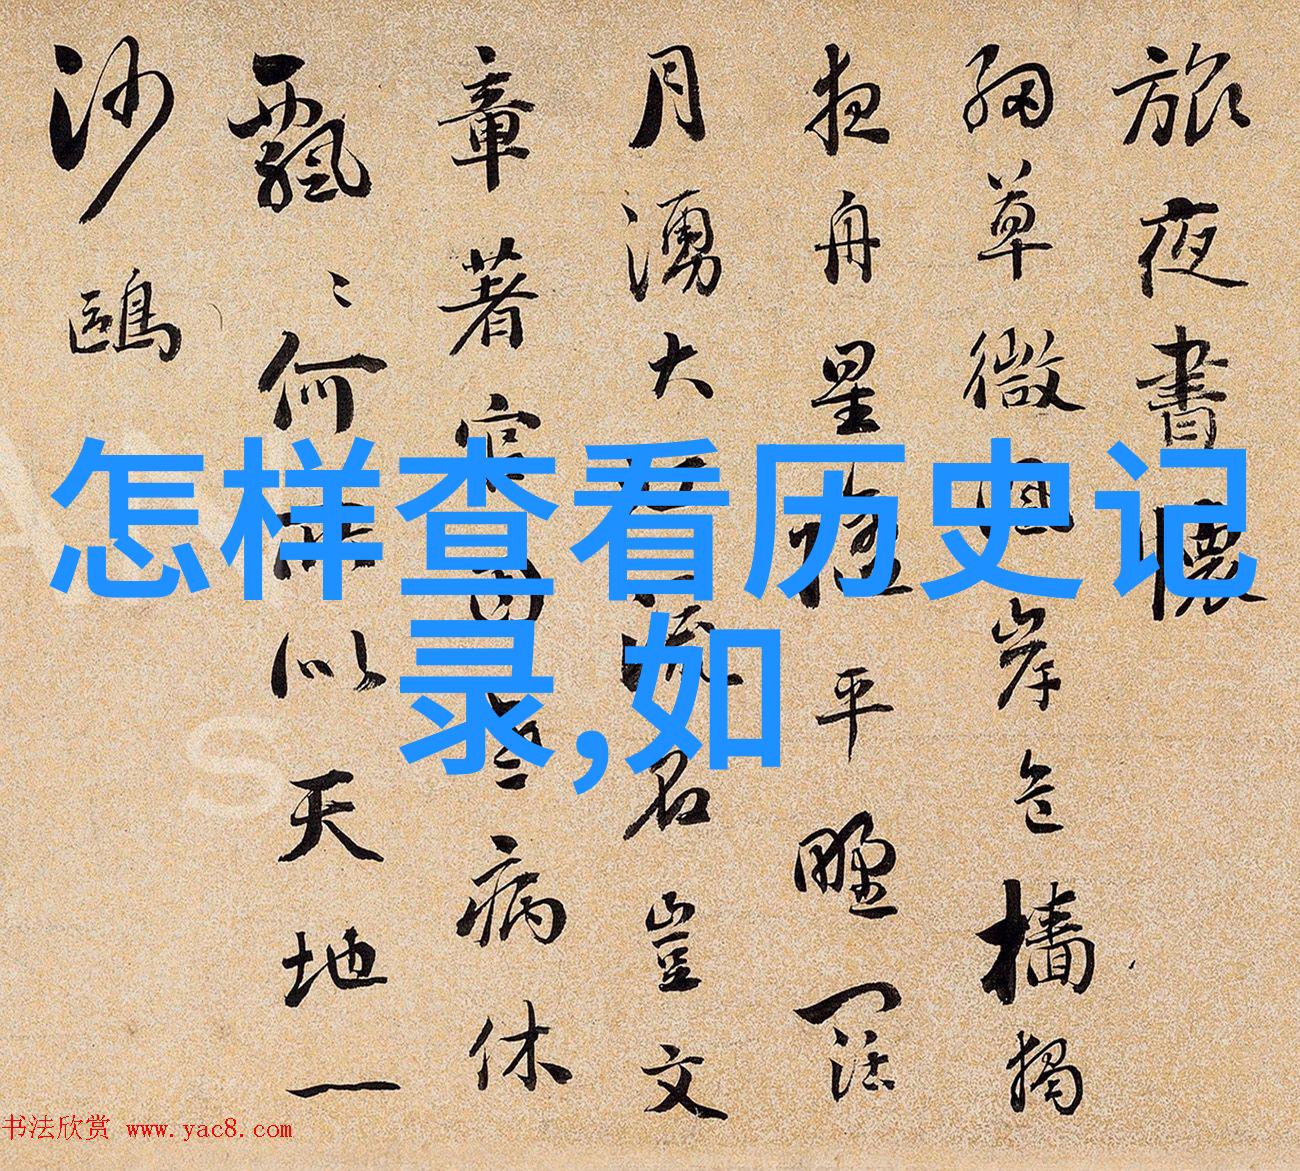 旅夜書懷
細草微風岸危檣獨
夜舟星垂平野闊
月湧大江流名豈文
章著官因老病休
飄〻何所似天地一
沙鷗
怎样查看历史记
录,如
书法欣赏 www.yac8.com